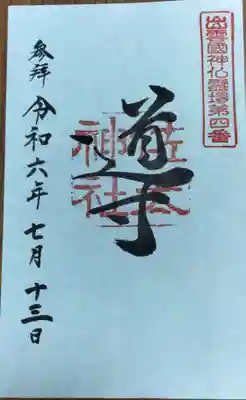 出雲國神仏霊場第四番
導
佐太
神社
参拝 令和六年 七月 十三日